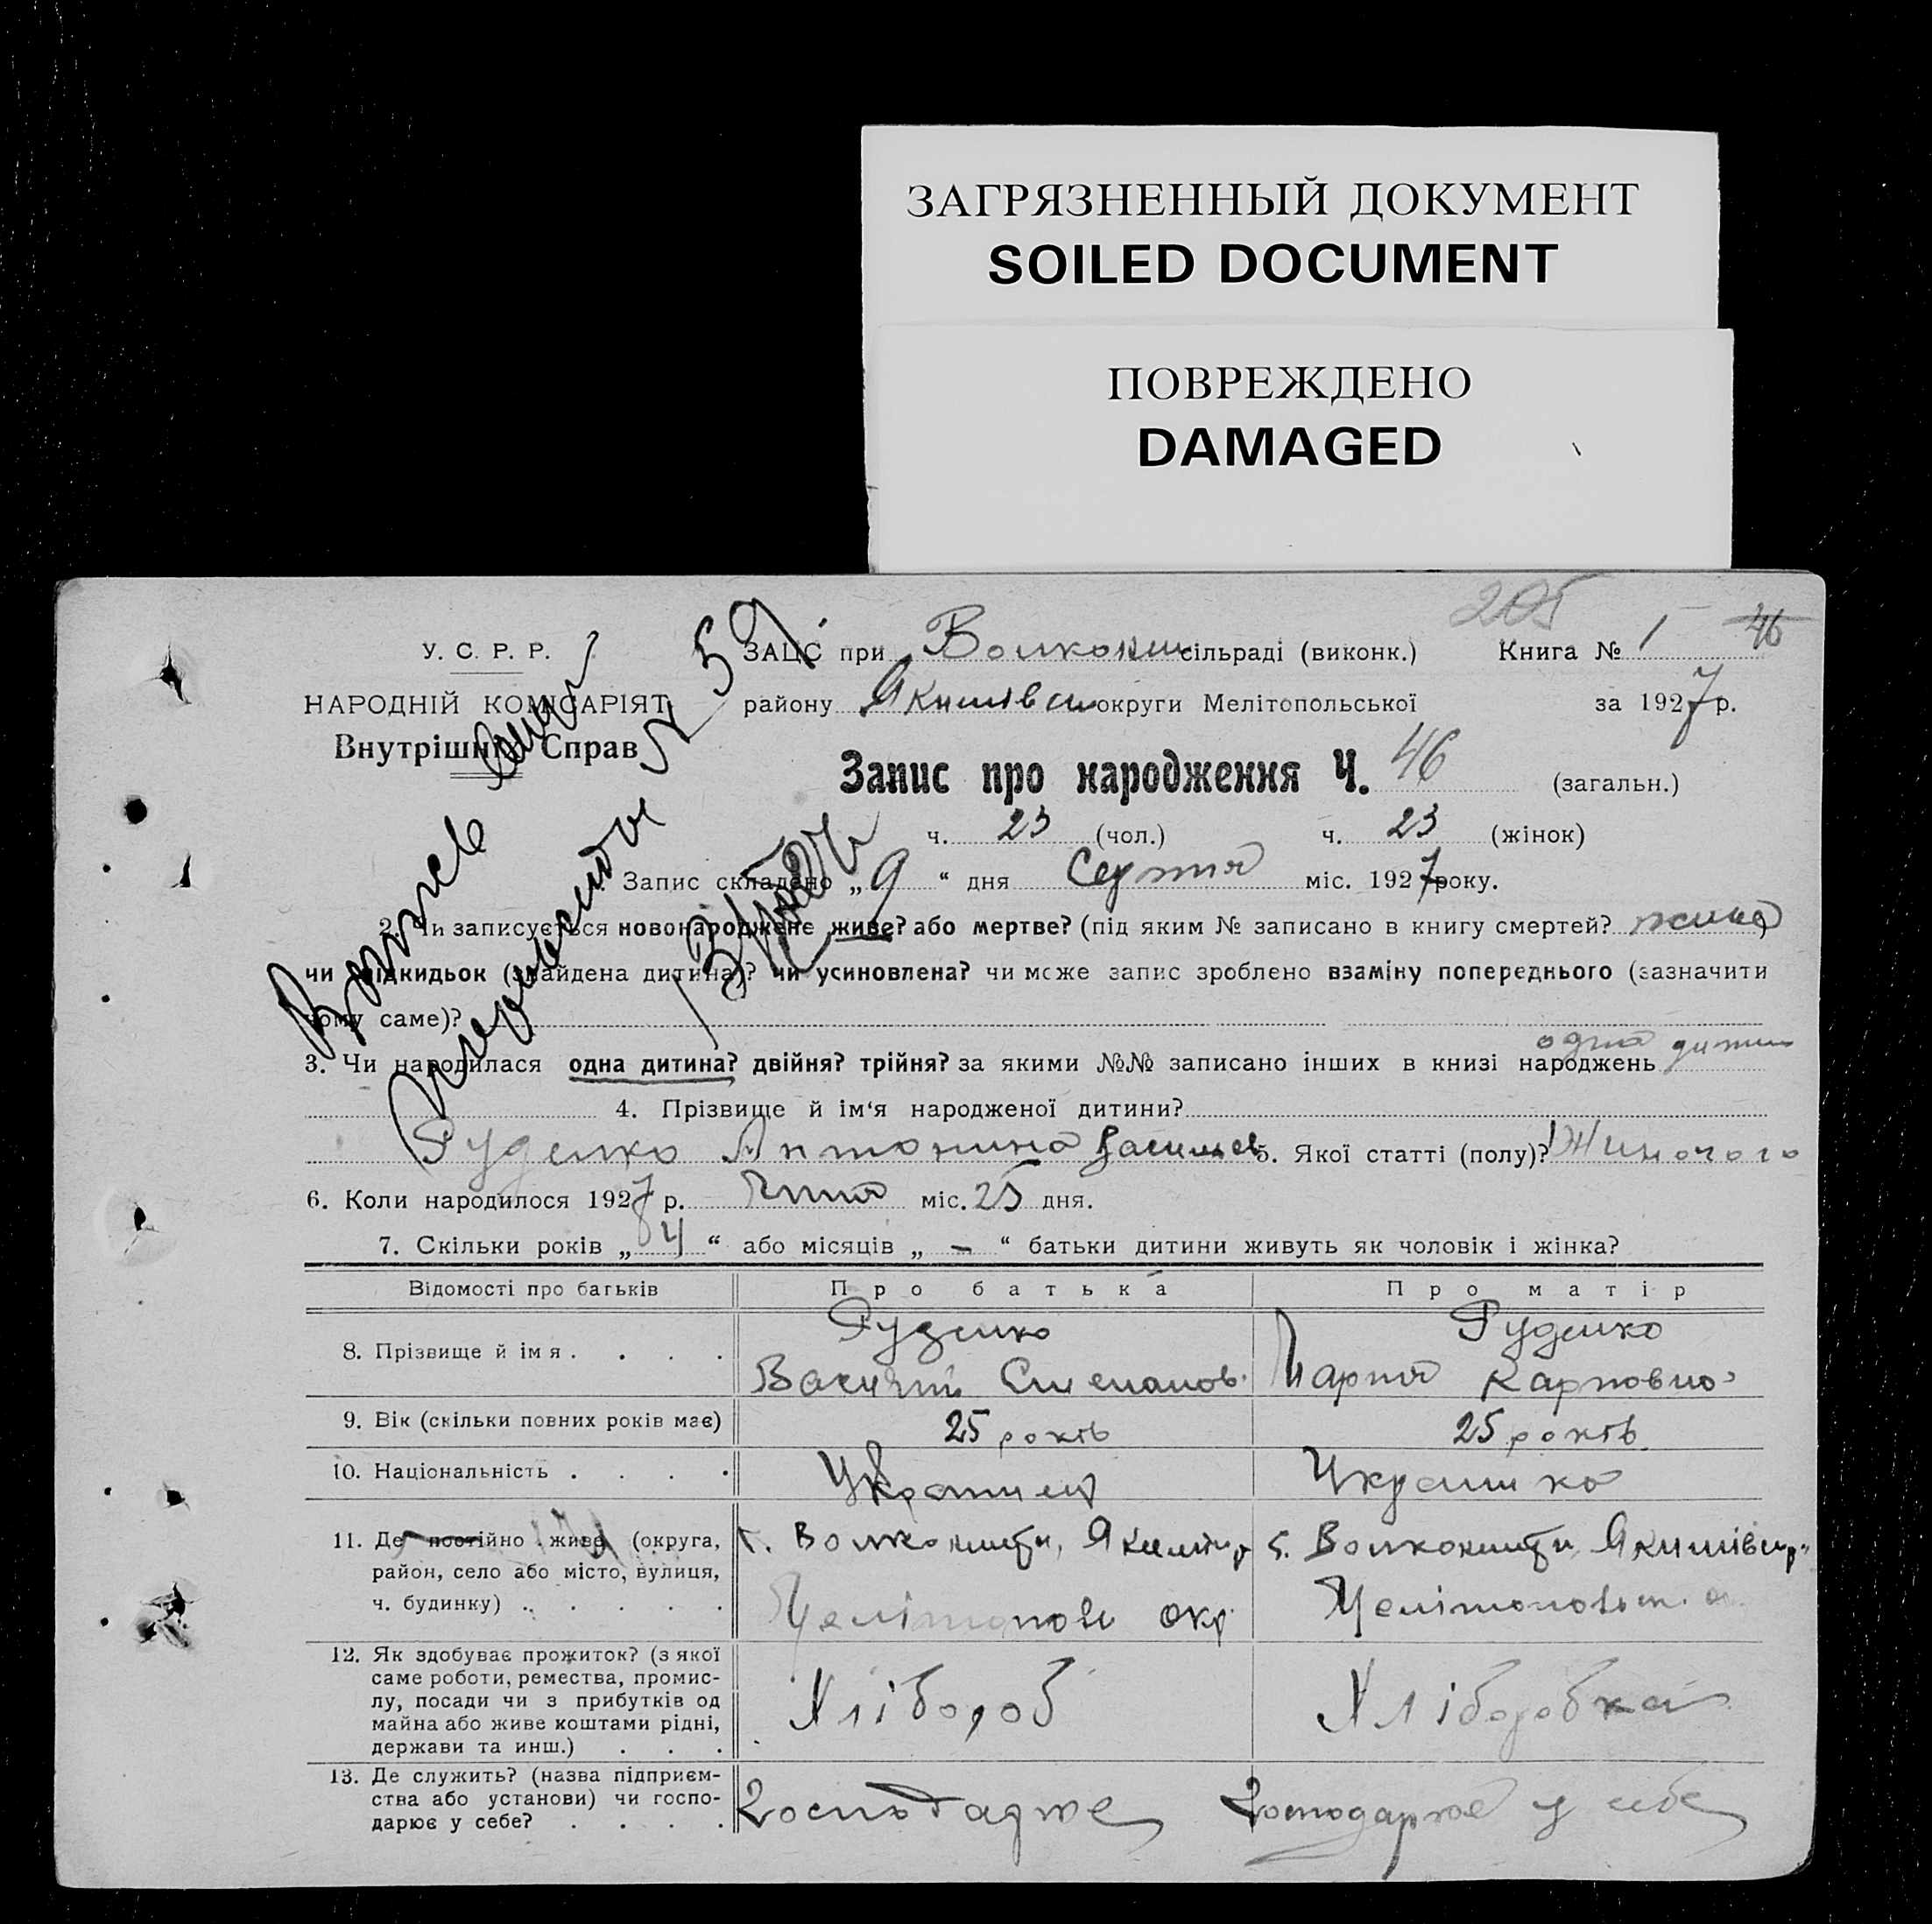 ЗАГРЯЗНЕННЫЙ ДОКУМЕНТ
SOILED DOCUMENT
ПОВРЕЖДЕНО
DAMAGED
205
У. С. Р. Р.
ЗАЦС при сільраді (виконк.) Книга № 1 46
НАРОДНІЙ КОМІСАРІЯТ
району округи Мелітопольської за 1927 р.
Внутрішніх Справ
Запис про народження Ч. 46 (загальн.)
ч. 23 (чол.) ч. 23 (жінок)
Запис складено „9“ дня Серпня міс. 1927 року.
2. Чи записується новонароджене живе? або мертве? (під яким № записано в книгу смертей? живе)
чи підкидьок (знайдена дитина)? чи усиновлена? чи може запис зроблено взаміну попереднього (зазначити
чому саме)?
3. Чи народилася одна дитина? двійня? трійня? за якими №№ записано інших в книзі народжень одна дитин
4. Прізвище й ім‘я народженої дитини?
Руденко Антонина Василів 5. Якої статті (полу)? Жиночого
6. Коли народилося 1927 р. міс. 25 дня.
7. Скільки років „4“ або місяців „–“ батьки дитини живуть як чоловік і жінка?
Відомості про батьків Про батька Про матір
8. Прізвище й імя . . . . Руденко Василий Степанов. Руденко Мария Карповна
9. Вік (скільки повних років має) 25 років 25 років
10. Національність . . . . Украинец Украинка
11. Де постійно живе (округа,
район, село або місто, вулиця,
ч. будинку) . . . . . окр.
12. Як здобуває прожиток? (з якої
саме роботи, ремества, промис-
лу, посади чи з прибутків од
майна або живе коштами рідні,
держави та инш.) . . . Хлібороб Хліборобка
13. Де служить? (назва підприєм-
ства або установи) чи госпо-
дарює у себе? . . . . Господарює Господарює у себе